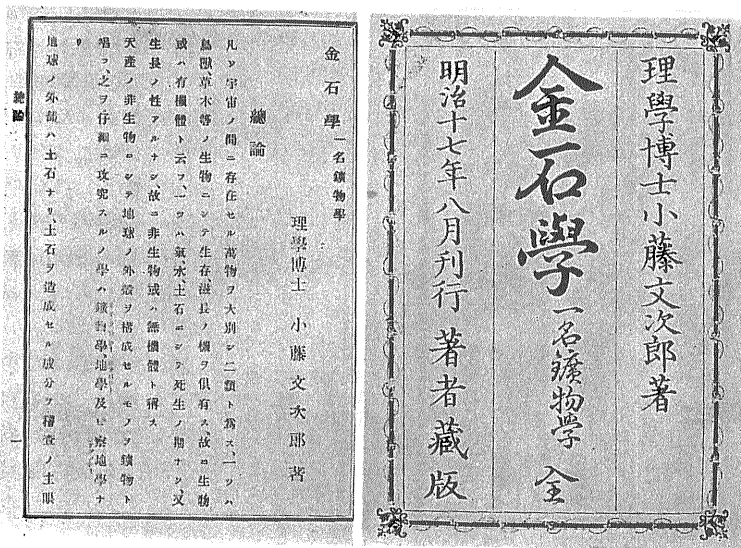 理學博士小藤文次郎著
金石學 一名鑛物学 全
明治十七年八月刊行 著者藏版
金石學 一名鑛物學
理學博士 小藤文次郎著
總論
凡ソ宇宙ノ間ニ存在セル萬物ヲ大別シ二類ト爲ス、一ツハ
鳥獸、草木等ノ生物ニシテ生存、滋長ノ機ヲ倶有ス、故ニ生物
或ハ有機體ト云フ、一ツハ氣、水、土石ニシテ死生ノ期ナシ、又
生長ノ性アルナシ、故ニ非生物或ハ無機體ト稱ス
天産ノ非生物ニシテ地球ノ外殼ヲ構成セルモノヲ鑛物ト
唱フ、之ヲ仔細ニ攻究スルノ學ハ鑛物學、地學及ヒ察地學ナ
リ
地球ノ外部ハ土石ナリ、土石ヲ造成セル成分ヲ稽査ノ主眼
總論
一